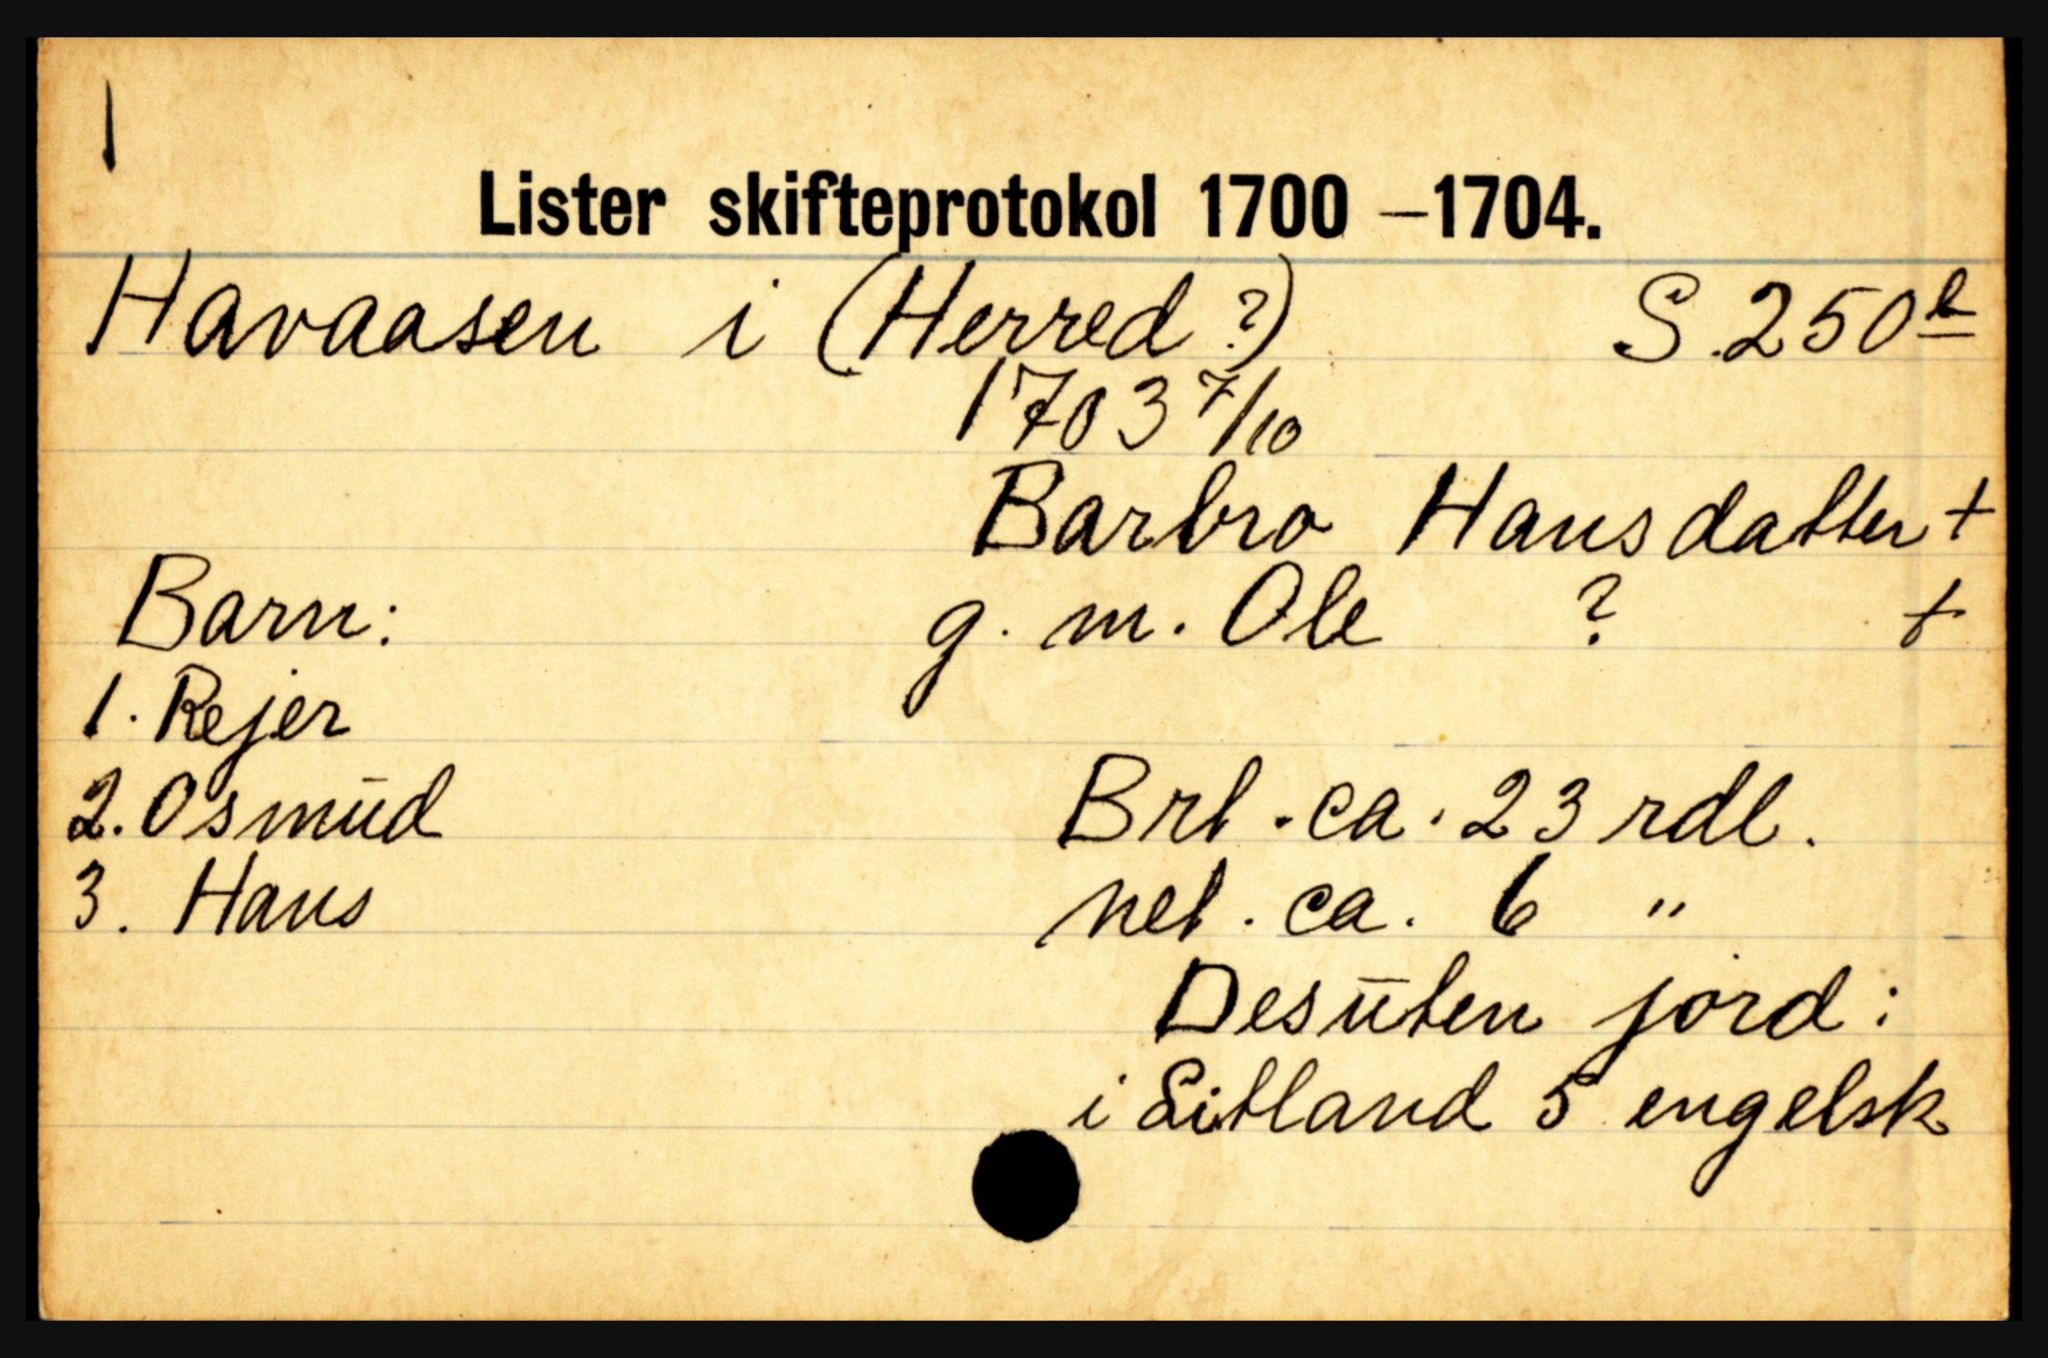 Lister skifteprotokol 1700 –1704.
Havaasen i (Herred?) S. 250 b
1703 7/10
Barbro Hansdatter +
Barn: g. m. Ole ? +
1. Rejer
2. Osmūd Brt. ca. 23 rdl.
3. Hans net. ca. 6 "
Desūten jord:
i Litland 5 engelsk